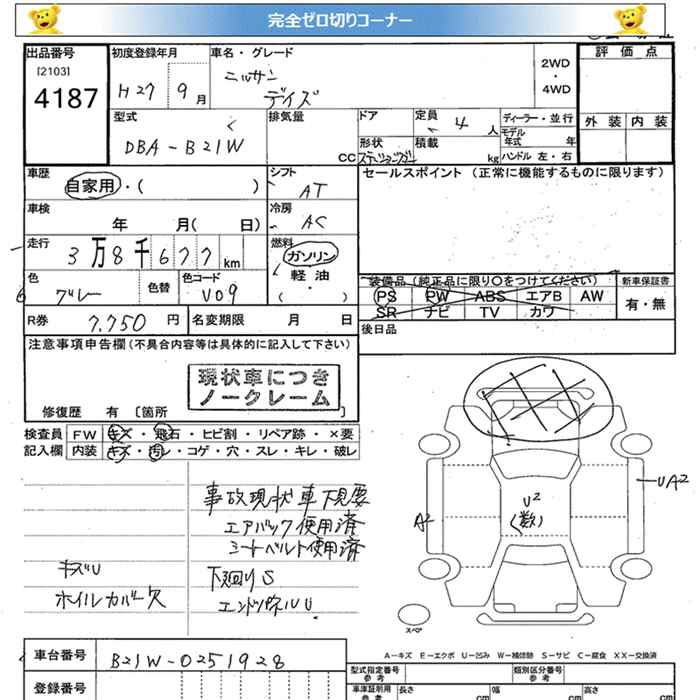 完全ゼロ切りコーナー
出品番号
[2103]
4187
初度登録年月
H27 9月
車名・グレード
ニッサン
デイズ
2WD
・
4WD
評価点
外装 内装
型式
DBA-B21W
排気量
CC
ドア
形状
ステーションワゴン
定員
4人
積載
kg
ディーラー・並行
モデル年式 年
ハンドル 左・右
車歴
自家用・( )
シフト
AT
セールスポイント(正常に機能するものに限ります)
車検
年 月( 日)
冷房
AC
走行
3万8千677km
燃料
ガソリン
軽・油
( )
色
グレー
色替
色コード
V09
装備品(純正品に限り○をつけてください)
PS PW ABS エアB AW
SR ナビ TV カワ
新車保証書
有・無
R券
7,750円
名変期限 月 日
後日品
注意事項申告欄(不具合内容等は具体的に記入して下さい)
現状車につき
ノークレーム
修復歴 有〔箇所 〕
検査員 FW キズ・飛石・ヒビ割・リペア跡・×要
記入欄 内装 キズ・汚レ・コゲ・穴・スレ・キレ・破レ
事故現状車下見要
エアバック使用済
シートベルト使用済
キズU
下廻りS
ホイルカバー欠
エンドパネルU
A2
U2
(数)
UA2
スペア
A-キズ E-エクボ U-凹み W-補修跡 S-サビ C-腐食 XX-交換済
車台番号
B21W-0251928
登録番号
型式指定番号
参考
類別区分番号
参考
車庫証明用
参考
長さ cm
幅 cm
高さ cm